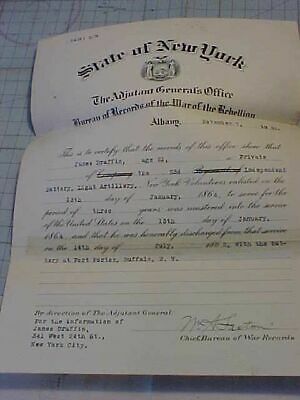 State of New York
The Adjutant General's Office
Bureau of Records of the War of the Rebellion
Albany,
This is to certify that the records of this office show that
James Gruffin, age 21, a Private
of Company the 23d Regiment Independent
Battery, Light Artillery, New York Volunteers enlisted on the
13th day of January, 1864, to serve for the
period of three years was mustered into the service
of the United States on the 13th day of January,
1864, and that he was honorably discharged from that service
on the 14th day of July, 186 , with the bat-
tery at Fort Porter, Buffalo, N. Y.
By direction of The Adjutant General:
For the information of
James Gruffin,
341 West 24th St.,
New York City.
Chief, Bureau of War Records